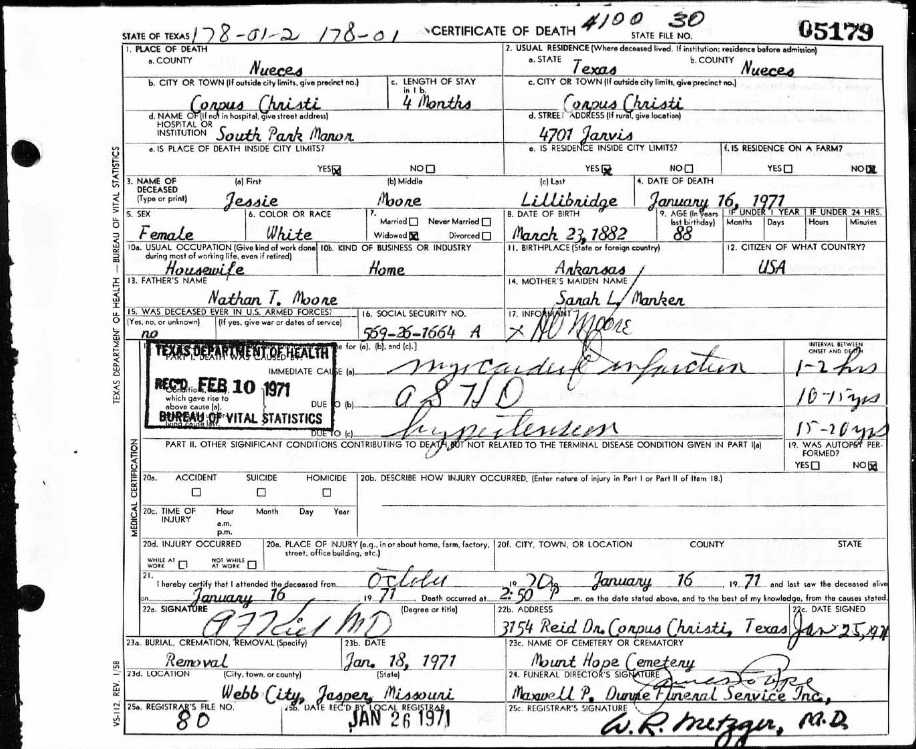 STATE OF TEXAS 178-01-2 178-01 CERTIFICATE OF DEATH 4100 30 STATE FILE NO. 05179
1. PLACE OF DEATH
a. COUNTY
Nueces
2. USUAL RESIDENCE (Where deceased lived. If institution: residence before admission)
a. STATE Texas b. COUNTY Nueces
b. CITY OR TOWN (If outside city limits, give precinct no.)
Corpus Christi
c. LENGTH OF STAY in 1 b.
4 Months
c. CITY OR TOWN (If outside city limits, give precinct no.)
Corpus Christi
d. NAME OF (If not in hospital, give street address)
HOSPITAL OR
INSTITUTION South Park Manor
d. STREET ADDRESS (If rural, give location)
4701 Jarvis
e. IS PLACE OF DEATH INSIDE CITY LIMITS?
YES ☒ NO ☐
e. IS RESIDENCE INSIDE CITY LIMITS?
YES ☒ NO ☐
f. IS RESIDENCE ON A FARM?
YES ☐ NO ☒
3. NAME OF DECEASED (Type or print)
(a) First Jessie
(b) Middle Moore
(c) Last Lillibridge
4. DATE OF DEATH
January 16, 1971
5. SEX
Female
6. COLOR OR RACE
White
7.
Married ☐ Never Married ☐
Widowed ☒ Divorced ☐
8. DATE OF BIRTH
March 23, 1882
9. AGE (In years last birthday)
88
IF UNDER 1 YEAR
Months Days
IF UNDER 24 HRS.
Hours Minutes
10a. USUAL OCCUPATION (Give kind of work done during most of working life, even if retired)
Housewife
10b. KIND OF BUSINESS OR INDUSTRY
Home
11. BIRTHPLACE (State or foreign country)
Arkansas
12. CITIZEN OF WHAT COUNTRY?
USA
13. FATHER'S NAME
Nathan T. Moore
14. MOTHER'S MAIDEN NAME
Sarah L. Manker
15. WAS DECEASED EVER IN U.S. ARMED FORCES?
(Yes, no, or unknown) (If yes, give war or dates of service)
no
16. SOCIAL SECURITY NO.
569-26-1664 A
17. INFORMANT
x Moore
TEXAS DEPARTMENT OF HEALTH
REC'D FEB 10 1971
BUREAU OF VITAL STATISTICS
for (a), (b), and (c).]
PART I. DEATH WAS CAUSED BY:
IMMEDIATE CAUSE (a) myocardial infarction
INTERVAL BETWEEN ONSET AND DEATH
1-2 hrs
which gave rise to
above cause (a),
DUE TO (b) ASHD
10-15 yrs
DUE TO (c) hypertension
15-20 yrs
PART II. OTHER SIGNIFICANT CONDITIONS CONTRIBUTING TO DEATH BUT NOT RELATED TO THE TERMINAL DISEASE CONDITION GIVEN IN PART I(a)
19. WAS AUTOPSY PERFORMED?
YES ☐ NO ☒
20a. ACCIDENT SUICIDE HOMICIDE
☐ ☐ ☐
20b. DESCRIBE HOW INJURY OCCURRED. (Enter nature of injury in Part I or Part II of Item 18.)
20c. TIME OF INJURY
Hour Month Day Year
a.m.
p.m.
20d. INJURY OCCURRED
WHILE AT WORK ☐ NOT WHILE AT WORK ☐
20e. PLACE OF INJURY (e.g., in or about home, farm, factory, street, office building, etc.)
20f. CITY, TOWN, OR LOCATION COUNTY STATE
21.
I hereby certify that I attended the deceased from October 1970, January 16 1971 and last saw the deceased alive
on January 16 1971 Death occurred at 2:50 P m. on the date stated above, and to the best of my knowledge, from the causes stated.
22a. SIGNATURE (Degree or title)
MD
22b. ADDRESS
3154 Reid Dr. Corpus Christi, Texas
22c. DATE SIGNED
Jan 25, 1971
23a. BURIAL, CREMATION, REMOVAL (Specify)
Removal
23b. DATE
Jan. 18, 1971
23c. NAME OF CEMETERY OR CREMATORY
Mount Hope Cemetery
23d. LOCATION (City, town, or county) (State)
Webb City, Jasper, Missouri
24. FUNERAL DIRECTOR'S SIGNATURE
Maxwell P. Dunne Funeral Service Inc.,
25a. REGISTRAR'S FILE NO.
80
25b. DATE REC'D BY LOCAL REGISTRAR
JAN 26 1971
25c. REGISTRAR'S SIGNATURE
W. R. Metzger, M.D.
TEXAS DEPARTMENT OF HEALTH — BUREAU OF VITAL STATISTICS
MEDICAL CERTIFICATION
VS-112, REV. 1/58